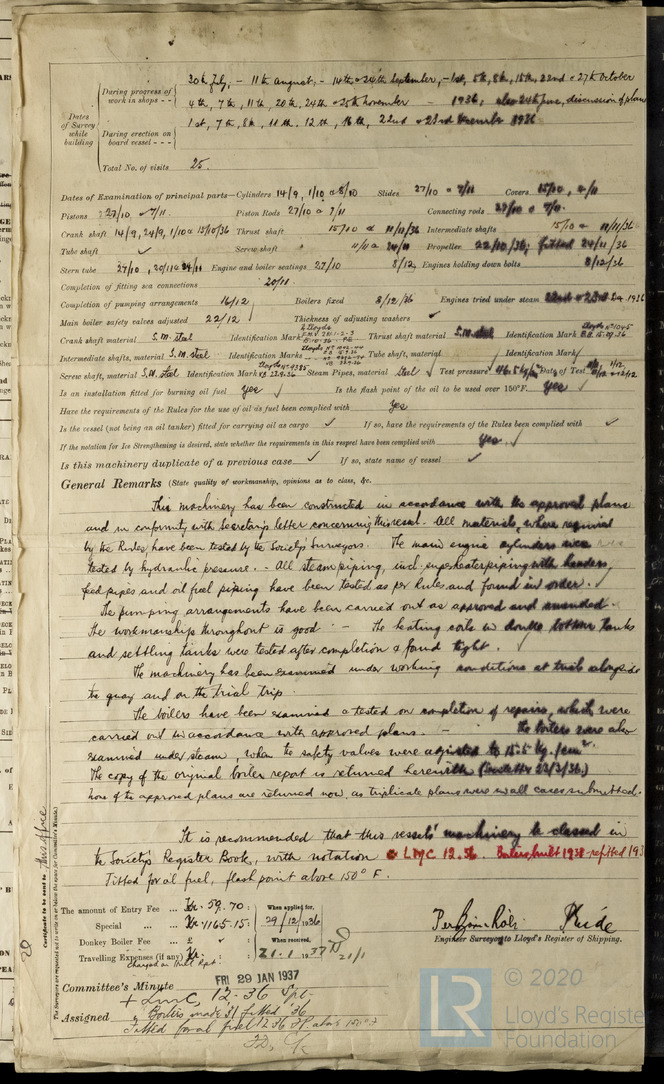 During progress of work in shops - - 20th July, - 11th August, - 14th & 24th September, - 1st, 5th, 8th, 15th, 22nd & 27th October
4th, 7th, 11th, 20th, 24th & 25th November - 1936, also 24th June, discussion of plans
Dates of Survey while building
During erection on board vessel - - - 1st, 7th, 8th, 11th, 12th, 16th, 22nd & 23rd December 1936
Total No. of visits 25.
Dates of Examination of principal parts—Cylinders 14/9, 1/10 & 8/10 Slides 27/10 & 7/11 Covers 15/10, 4/11
Pistons 27/10, 7/11. Piston Rods 27/10 & 7/11 Connecting rods 27/10 & 7/11.
Crank shaft 14/9, 24/9, 1/10 & 15/10/36 Thrust shaft 15/10 & 11/11/36 Intermediate shafts 15/10 & 11/11/36
Tube shaft ✓ Screw shaft 11/11 & 24/11 Propeller 22/10/36, fitted 24/11/36
Stern tube 27/10, 20/11 & 24/11 Engine and boiler seatings 27/10 8/12, Engines holding down bolts 8/12/36
Completion of fitting sea connections 20/11
Completion of pumping arrangements 16/12 Boilers fixed 8/12/36 Engines tried under steam 22nd & 23rd Dec. 1936
Main boiler safety valves adjusted 22/12 Thickness of adjusting washers ✓
Crank shaft material S.M. Steel Identification Mark Lloyds Thrust shaft material S.M. steel Identification Mark Lloyds No 1045
Intermediate shafts, material S.M. steel Identification Marks Tube shaft, material Identification Mark
Screw shaft, material S.M. Steel Identification Mark Steam Pipes, material Steel ✓ Test pressure 46.5 kg/cm² Date of Test
Is an installation fitted for burning oil fuel yes ✓ Is the flash point of the oil to be used over 150°F. yes ✓
Have the requirements of the Rules for the use of oil as fuel been complied with Yes
Is the vessel (not being an oil tanker) fitted for carrying oil as cargo ✓ If so, have the requirements of the Rules been complied with ✓
If the notation for Ice Strengthening is desired, state whether the requirements in this respect have been complied with Yes. ✓
Is this machinery duplicate of a previous case ✓ If so, state name of vessel ✓
General Remarks (State quality of workmanship, opinions as to class, &c.
This machinery has been constructed in accordance with the approved plans
and in conformity with Secretary's letter concerning this vessel. All materials, where required
by the Rules, have been tested by the Society's Surveyors. The main engine cylinders were
tested by hydraulic pressure. - All steam piping, incl. superheater piping with headers,
feed pipes and oil fuel piping have been tested as per Rules and found in order. ✓
The pumping arrangements have been carried out as approved and amended.
The workmanship throughout is good. - The heating coils in double bottom tanks
and settling tanks were tested after completion & found tight. ✓
The machinery has been examined under working conditions at trials alongside
the quay and on the trial trip.
The boilers have been examined & tested on completion of repairs, which were
carried out in accordance with approved plans. - the boilers were also
examined under steam, when the safety valves were adjusted to 15.5 kg./cm²
The copy of the original boiler report is returned herewith
None of the approved plans are returned now, as triplicate plans were in all cases submitted.
It is recommended that this vessel's machinery be classed in
the Society's Register Book, with notation + LMC 12.36. Boilers built 1931 refitted 193
Fitted for oil fuel, flash point above 150° F.
Certificate to be sent to this office
The amount of Entry Fee ... Kr. 59.70 : When applied for,
Special ... Kr. 1165.15 : 29/12/1936
Donkey Boiler Fee ... £ ✓ : When received,
Travelling Expenses (if any) Kr. 21.1.1937 21/1
Charged on Hull Rpt.
Engineer Surveyor to Lloyd's Register of Shipping.
Committee's Minute FRI 29 JAN 1937
Assigned + LMC 12.36 Spt.
Boilers made 31 fitted '36
Fitted for oil fuel 12.36 FP above 150° F
© 2020
LR
Lloyd's Register
Foundation